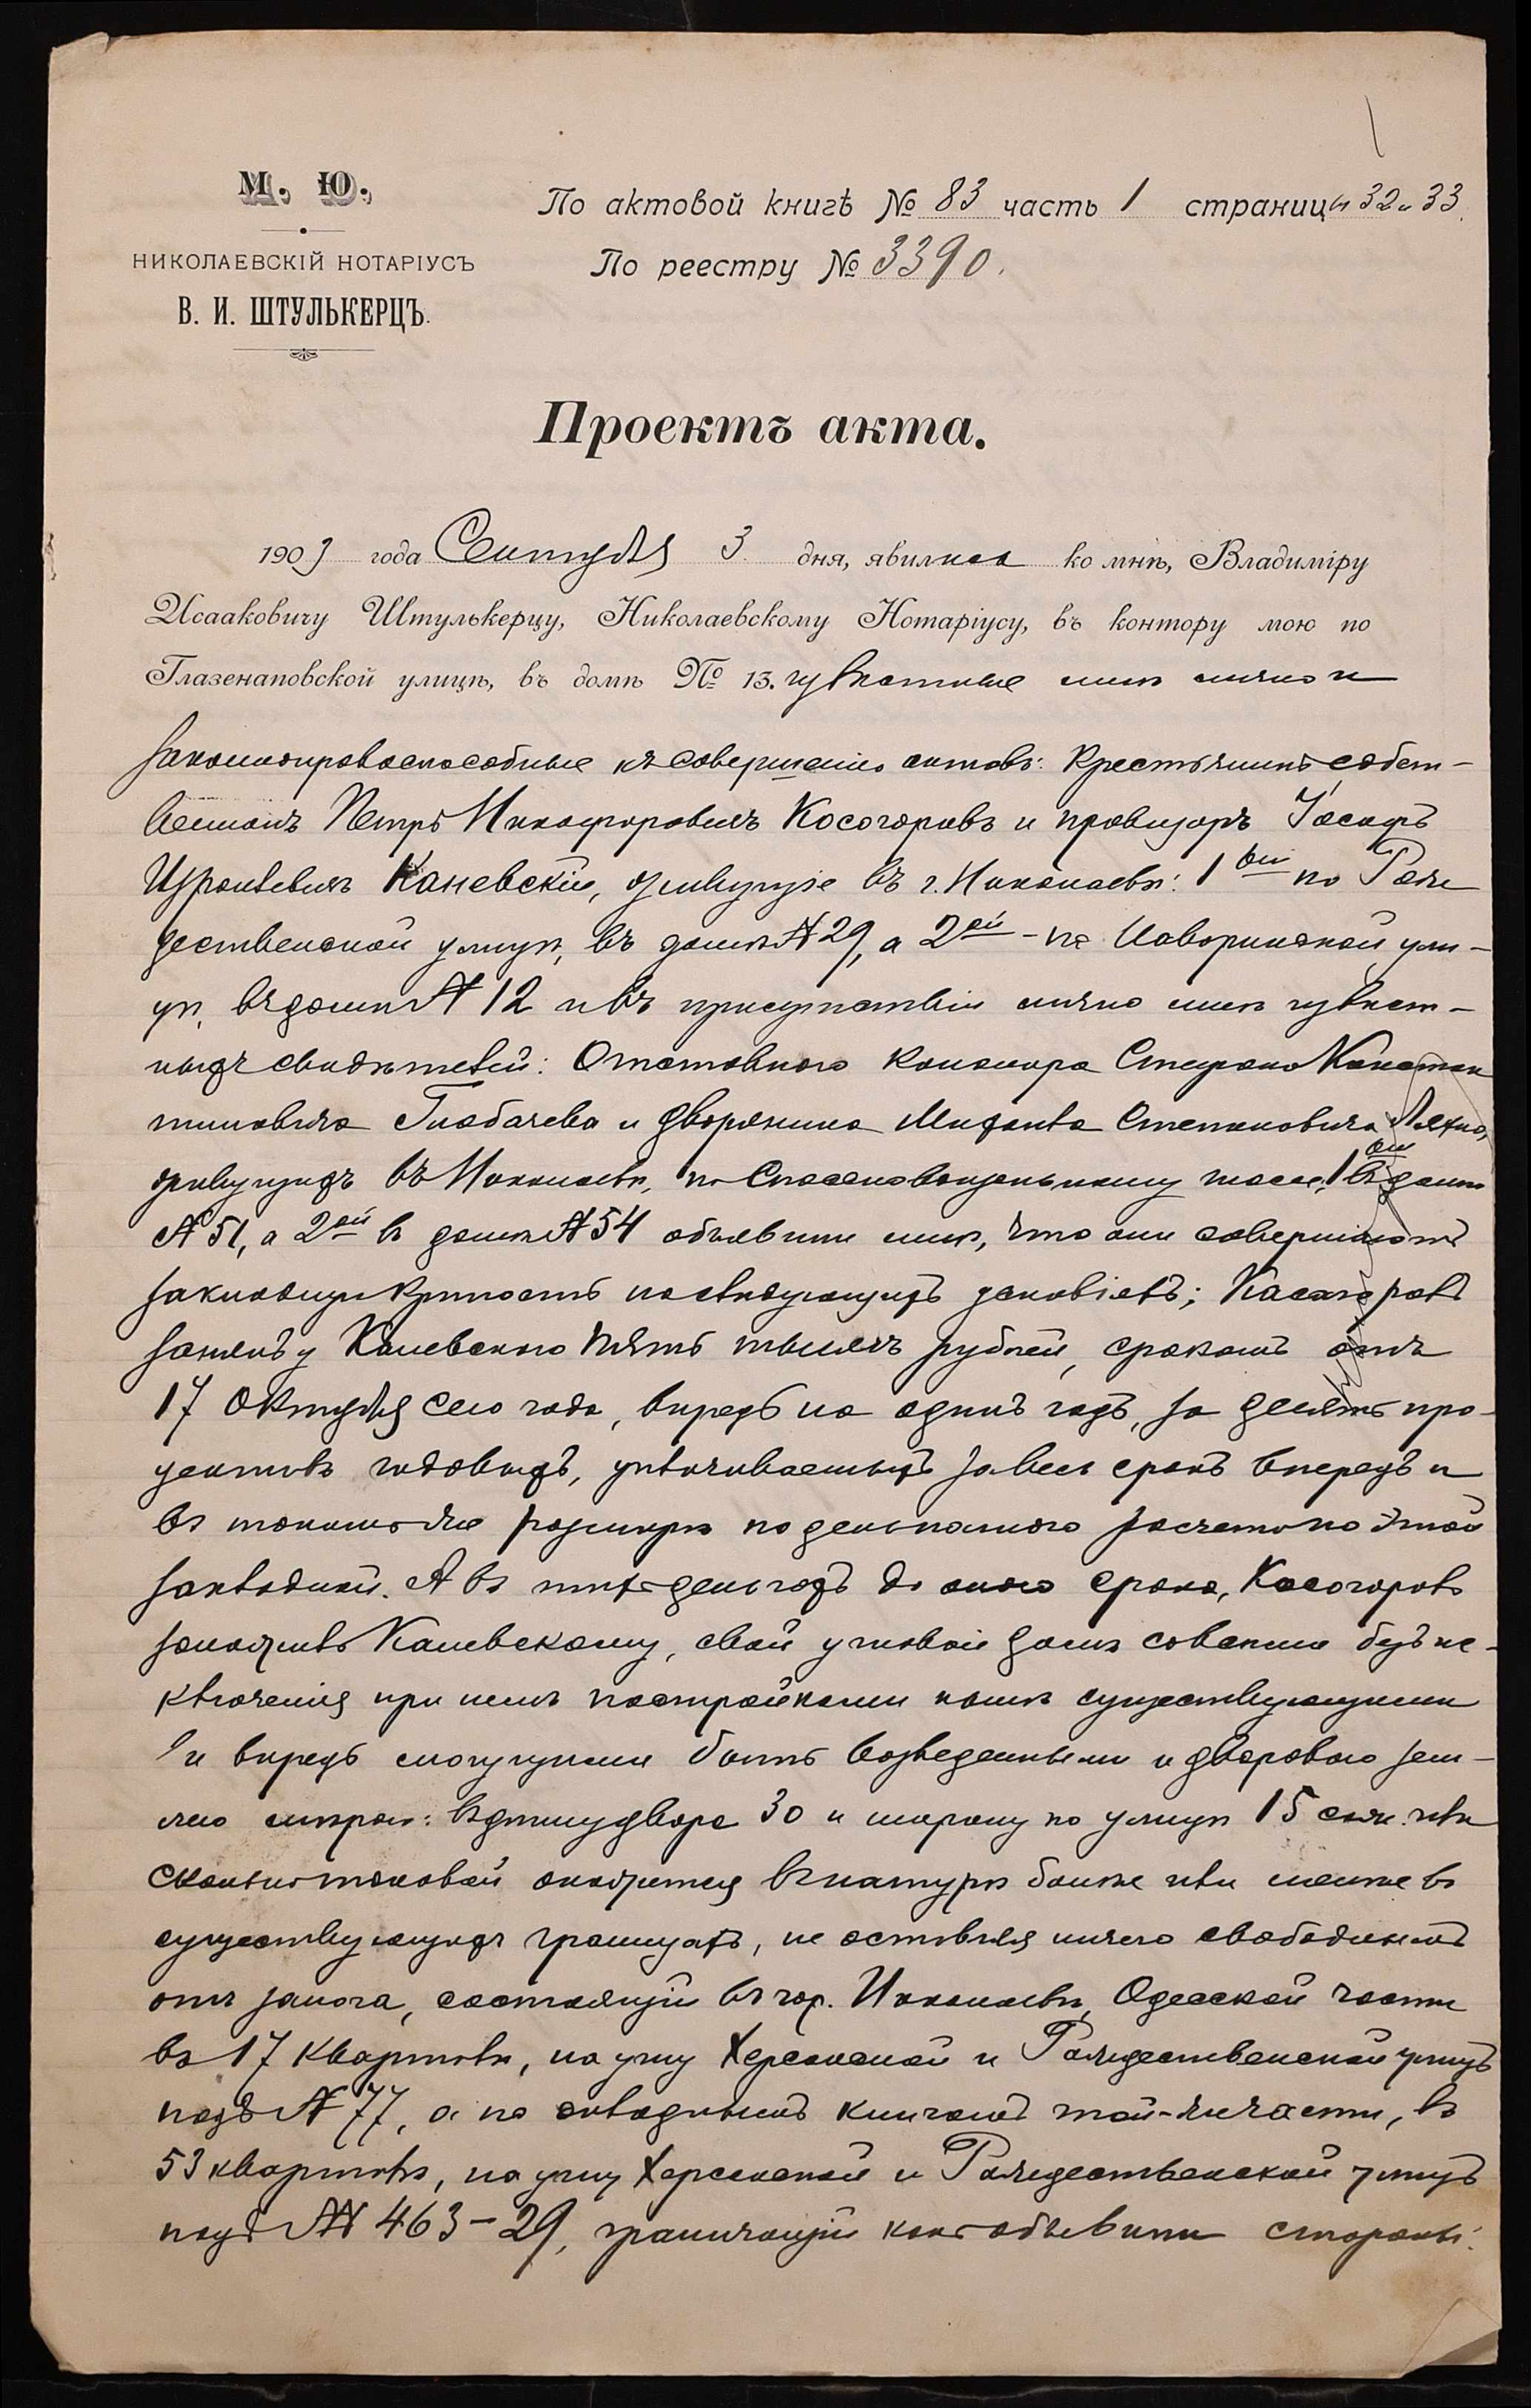 М. Ю.
НИКОЛАЕВСКІЙ НОТАРІУСЪ
В. И. ШТУЛЬКЕРЦЪ.
По актовой книгѣ № 83 часть 1 страницы 32 и 33.
По реестру № 3390.
Проектъ акта.
1903 года Сентября 3 дня, явились ко мнѣ, Владиміру
Исааковичу Штулькерцу, Николаевскому Нотаріусу, въ контору мою по
Глазенаповской улицѣ, въ домѣ № 13. извѣстные мнѣ лично и
законноправоспособные къ совершенію актовъ: Крестьянинъ собст-
венникъ Петръ Никифоровичъ Косогоровъ и провизоръ Іосифъ
Израилевичъ Каневскій, живущіе въ г. Николаевѣ: 1ый по Рож
дественской улицѣ, въ домѣ № 29, а 2ой - по ули-
цѣ, въ домѣ № 12 и въ присутствіи лично мнѣ извѣст-
ныхъ свидѣтелей: Отставного Стефана Констан
тиновича Глобачева и дворянина Степановича
живущихъ въ Николаевѣ, по 1ый въ домѣ
№ 51, а 2ой въ домѣ № 54 объявили мнѣ, что они совершаютъ
закладную крѣпость на слѣдующихъ условіяхъ; Косогоровъ
занялъ у Каневского пять тысячъ рублей, срокомъ отъ
17 Октября сего года, впредь на одинъ годъ, за десять про-
центовъ годовыхъ, уплачиваемыхъ за весь срокъ впередъ и
въ такомъ же размѣрѣ по день полного расчета по этой
закладной. А въ тѣхъ деньгахъ до оного срока, Косогоровъ
заложилъ Каневскому, свой угловой домъ со всѣми безъ ис-
ключенія при немъ постройками нынѣ существующими
и впредь могущими быть возведенными и дворовою зем-
лею мѣрою: въ длину двора 30 и ширину по улицѣ 15 саж. или
сколько таковой окажется въ натурѣ болѣе или менѣе въ
существующихъ границахъ, не оставляя ничего свободнымъ
отъ залога, состоящій въ гор. Николаевѣ, Одесской части
въ 17 кварталѣ, на углу Херсонской и Рождественской улицъ
подъ № 77, а по окладнымъ книгамъ той-же части, въ
53 кварталѣ, на углу Херсонской и Рождественской улицъ
подъ №№ 463-29, граничащій какъ объявили стороны: